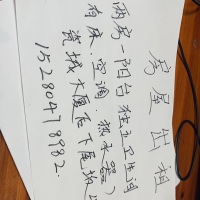 房屋出租
两房一阳台 独立卫生间
有床.空调 热水器)
瓷城大厦在下尾坂
15280478982.